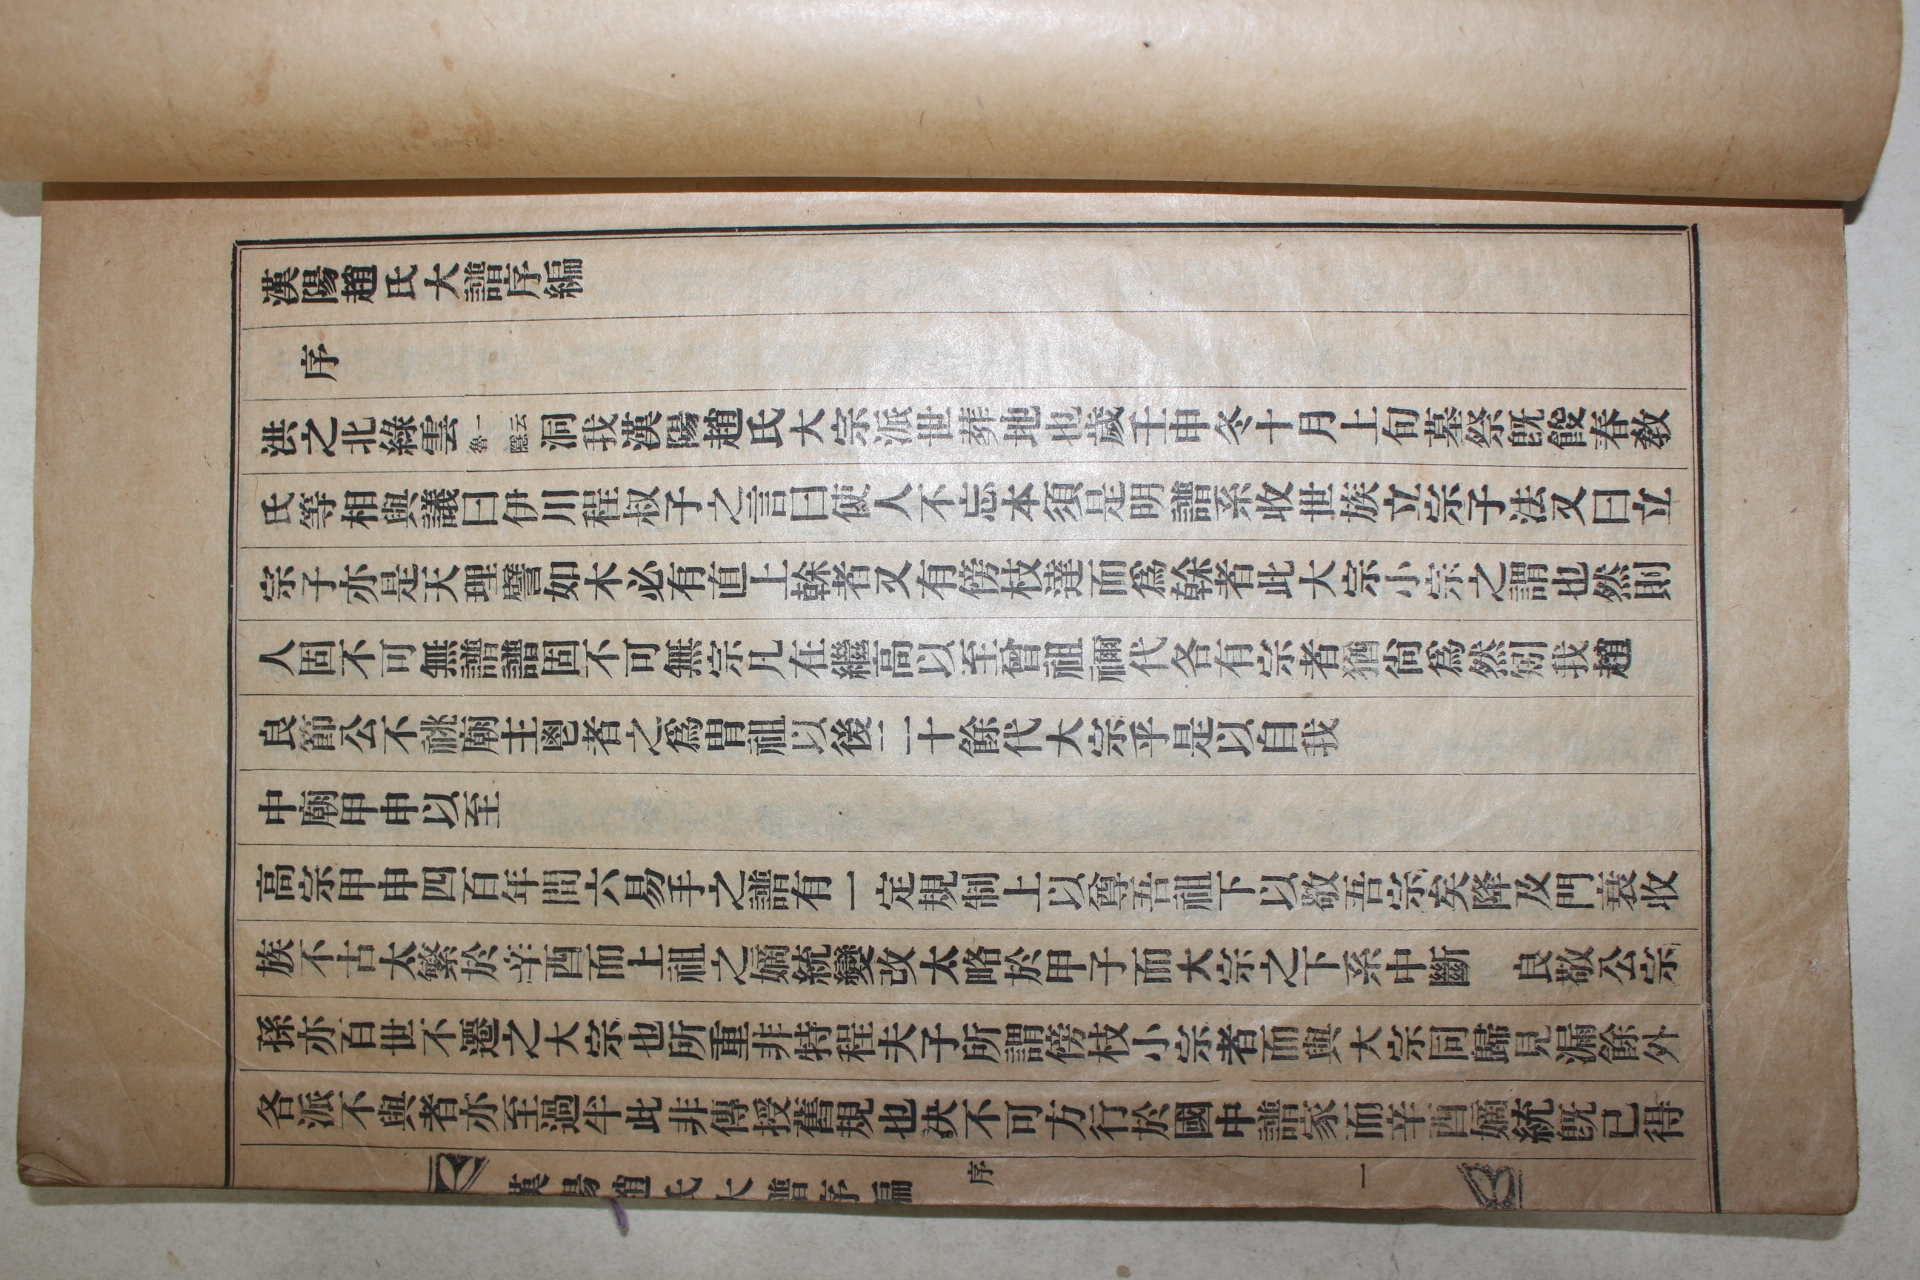 漢陽趙氏大譜序編
序
洪之北綠雲一云魯隱洞我漢陽趙氏大宗派世葬地也歲壬申冬十月上旬墓祭旣餕春敎
氏等相與議曰伊川程叔子之言曰使人不忘本須是明譜系收世族立宗子法又曰立
宗子亦是天理譬如木必有直上榦者又有傍枝達而爲榦者此大宗小宗之謂也然則
人固不可無譜譜固不可無宗凡在繼高以至曾祖禰代各有宗者猶尙爲然矧我趙
良節公不祧廟主鬯者之爲胄祖以後二十餘代大宗乎是以自我
中廟甲申以至
高宗甲申四百年間六易手之譜有一定規制上以尊吾祖下以敬吾宗矣降及門衰收
族不古太繁於辛酉而上祖之嫡統變改太略於甲子而大宗之下系中斷 良敬公宗
孫亦百世不遷之大宗也所重非特程夫子所謂傍枝小宗者而與大宗同歸見漏餘外
各派不與者亦至過半此非傳授舊規也决不可方行於國中譜家而辛酉嫡統旣已得
漢陽趙氏大譜序編 序 一